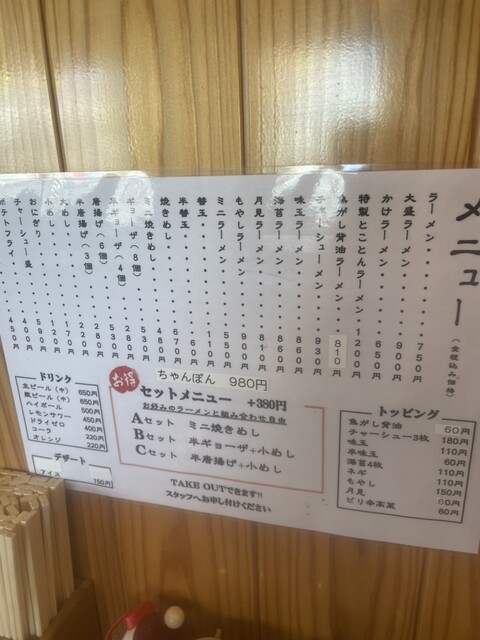 メニュー(全税込み価格)
ラーメン・・・・・・・750円
大盛ラーメン・・・・・900円
かけラーメン・・・・・650円
特製とことんラーメン・
焦がし背油ラーメン・・810円
チャーシューメン・・・930円
味玉ラーメン・・・・・860円
海苔ラーメン・・・・・
月見ラーメン・・・・・
もやしラーメン・・・・
ミニラーメン・・・・・550円
替玉・・・・・・・・・110円
半替玉・・・・・・・・60円
焼きめし・・・・・・・670円
ミニ焼きめし・・・・・480円
ギョーザ(8個)・・・・530円
半ギョーザ(4個)・・・280円
唐揚げ(6個)・・・・・
半唐揚げ(3個)・・・・
大めし・・・・・・・・170円
小めし・・・・・・・・120円
おにぎり・・・・・・・
チャーシュー盛・・・・
ポテトフライ・・・・・450円
ドリンク
生ビール(中) 650円
瓶ビール(中) 650円
ハイボール 500円
レモンサワー 450円
ドライゼロ 400円
コーラ 220円
オレンジ 220円
デザート
アイス 150円
お得
ちゃんぽん 980円
セットメニュー +380円
お好みのラーメンと組み合わせ自由
Aセット ミニ焼きめし
Bセット 半ギョーザ+小めし
Cセット 半唐揚げ+小めし
TAKE OUTできます!!
スタッフへお申し付けください
トッピング
焦がし背油 60円
チャーシュー3枚 180円
味玉 110円
半味玉 60円
海苔4枚 110円
ネギ 110円
もやし 150円
月見 60円
ピリ辛高菜 60円